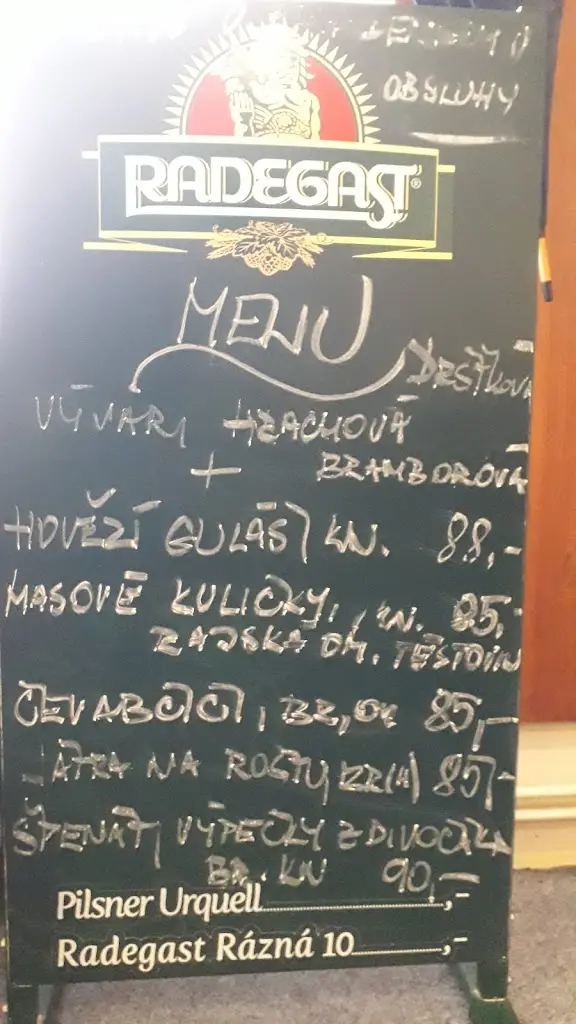 OBSLUHY
RADEGAST®
MENU
DRŠŤKOVÁ
VÝVAR, HRACHOVÁ
+ BRAMBOROVÁ
HOVĚZÍ GULÁŠ, KN. 88,-
MASOVÉ KULIČKY, 85,-
RAJSKÁ OM. TĚSTOVINY
ČEVABČIČI, BR, 85,-
JÁTRA NA ROŠTU, BR(H) 85,-
ŠPENÁT, VÝPEČKY Z DIVOČÁKA
BR. KN 90,-
Pilsner Urquell ,-
Radegast Rázná 10 ,-